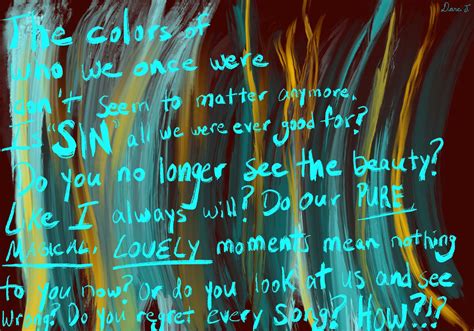 Dani J.
The colors of
who we once were
don't seem to matter anymore.
Is "SIN" all we were ever good for?
Do you no longer see the beauty?
Like I always will? Do our PURE,
MAGICAL, LOVELY moments mean nothing
to you now? Or do you look at us and see
wrong? Do you regret every song? How?!?